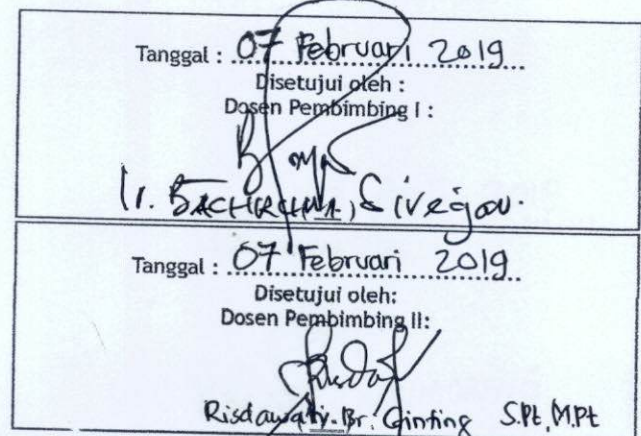 Tanggal : 07 Februari 2019
Disetujui oleh :
Dosen Pembimbing I :
Ir.
Tanggal : 07 Februari 2019
Disetujui oleh:
Dosen Pembimbing II:
Risdawaty Br. Ginting S.Pt, M.Pt